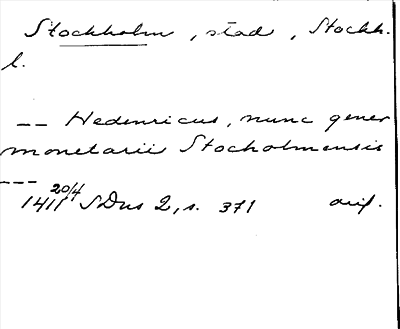 Stockholm, stad, Stockh.
l.
-- Hedenricus, nunc gener
monetarii Stocholmensis
---
1411 20/4 SDns 2, s. 371 avif.